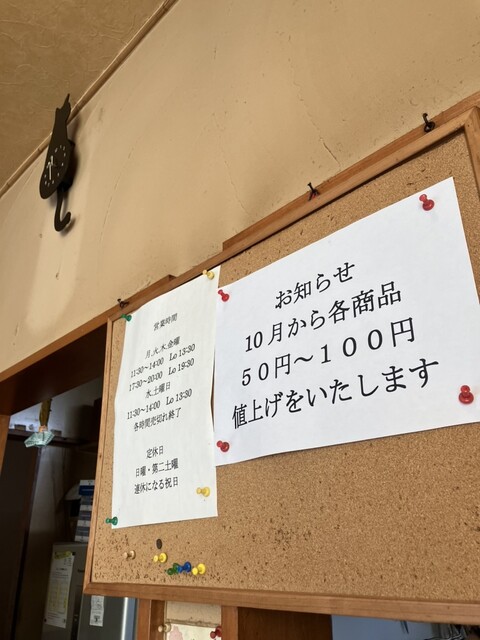 営業時間
月,火,木,金曜
11:30~14:00 Lo 13:30
17:30~20:00 Lo 19:30
水,土曜日
11:30~14:00 Lo 13:30
各時間売切れ終了
定休日
日曜・第二土曜
連休になる祝日
お知らせ
10月から各商品
50円~100円
値上げをいたします